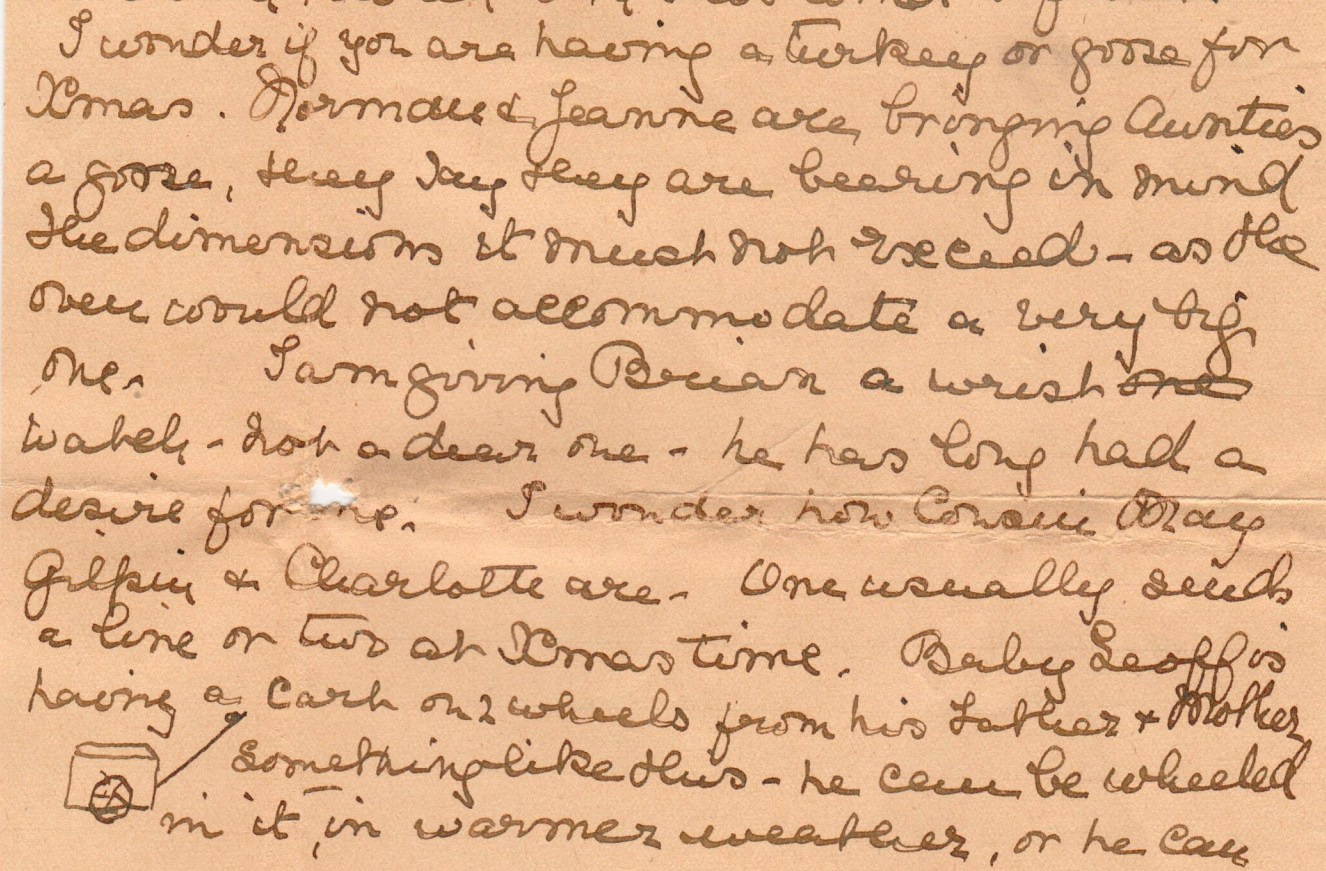 I wonder if you are having a turkey or goose for
Xmas. Norman & Jeanne are, bringing Aunties
a goose, they say they are bearing in mind
the dimensions it must not exceed - as the
oven would not accommodate a very big
one. I am giving Brian a wrist one
watch - not a dear one - he has long had a
desire for one. I wonder how Cousin May
Gilpin & Charlotte are - One usually sends
a line or two at Xmas time. Baby Geoff is
having a cart on 2 wheels from his Father & Mother,
something like this - he can be wheeled
in it, in warmer weather, or he can